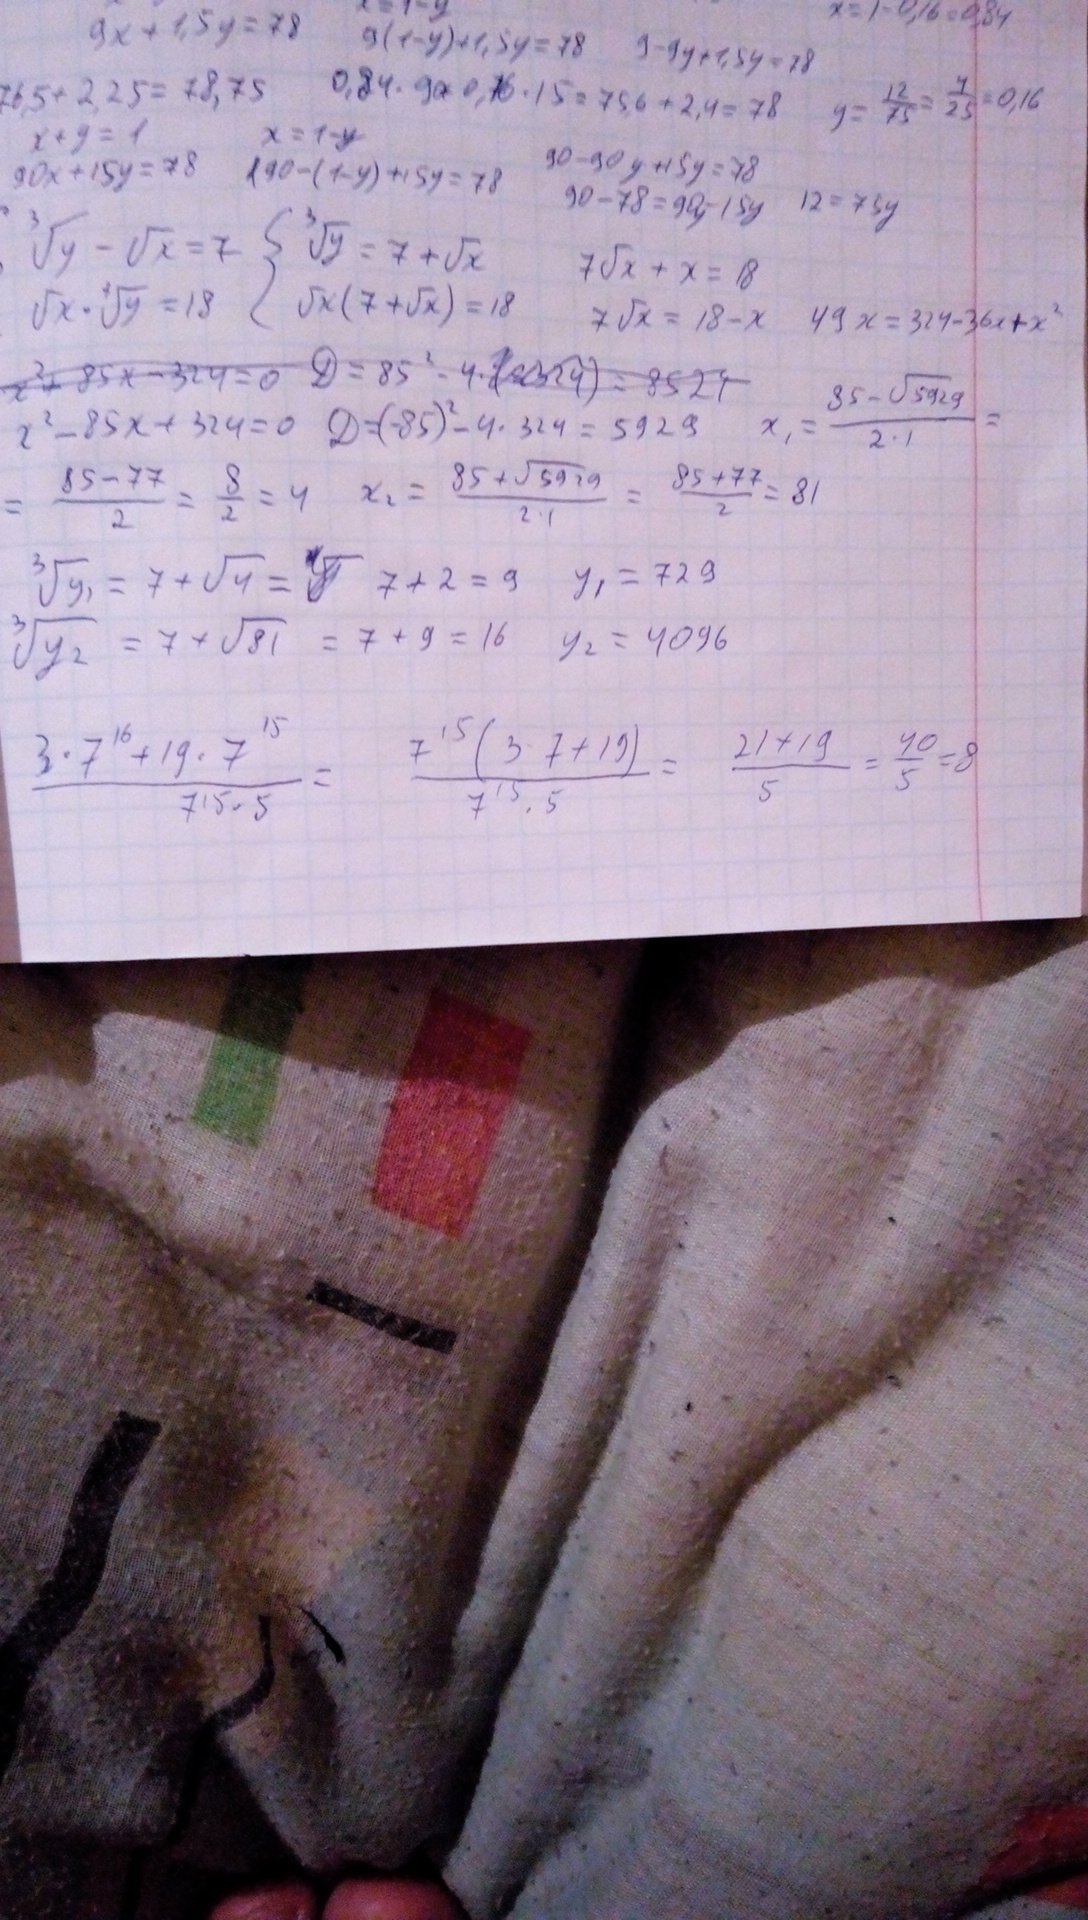 x=1-y x=1-0,16=0,84
9x+1,5y=78 9(1-y)+1,5y=78 9-9y+1,5y=78
76,5+2,25=78,75 0,84·90+0,16·15=75,6+2,4=78 y=12/75=4/25=0,16
x+y=1 x=1-y
90x+15y=78 90-(1-y)+15y=78 90-90y+15y=78
90-78=90y-15y 12=75y
∛y-√x=7 { ∛y=7+√x 7√x+x=18
√x·∛y=18 √x(7+√x)=18 7√x=18-x 49x=324-36x+x²
x²-85x+324=0 D=(-85)²-4·324=5929 x₁=(85-√5929)/(2·1)=
=(85-77)/2=8/2=4 x₂=(85+√5929)/(2·1)=(85+77)/2=81
∛y₁=7+√4= 7+2=9 y₁=729
∛y₂=7+√81=7+9=16 y₂=4096
(3·7¹⁶+19·7¹⁵)/(7¹⁵·5)= (7¹⁵(3·7+19))/(7¹⁵·5)= (21+19)/5=40/5=8